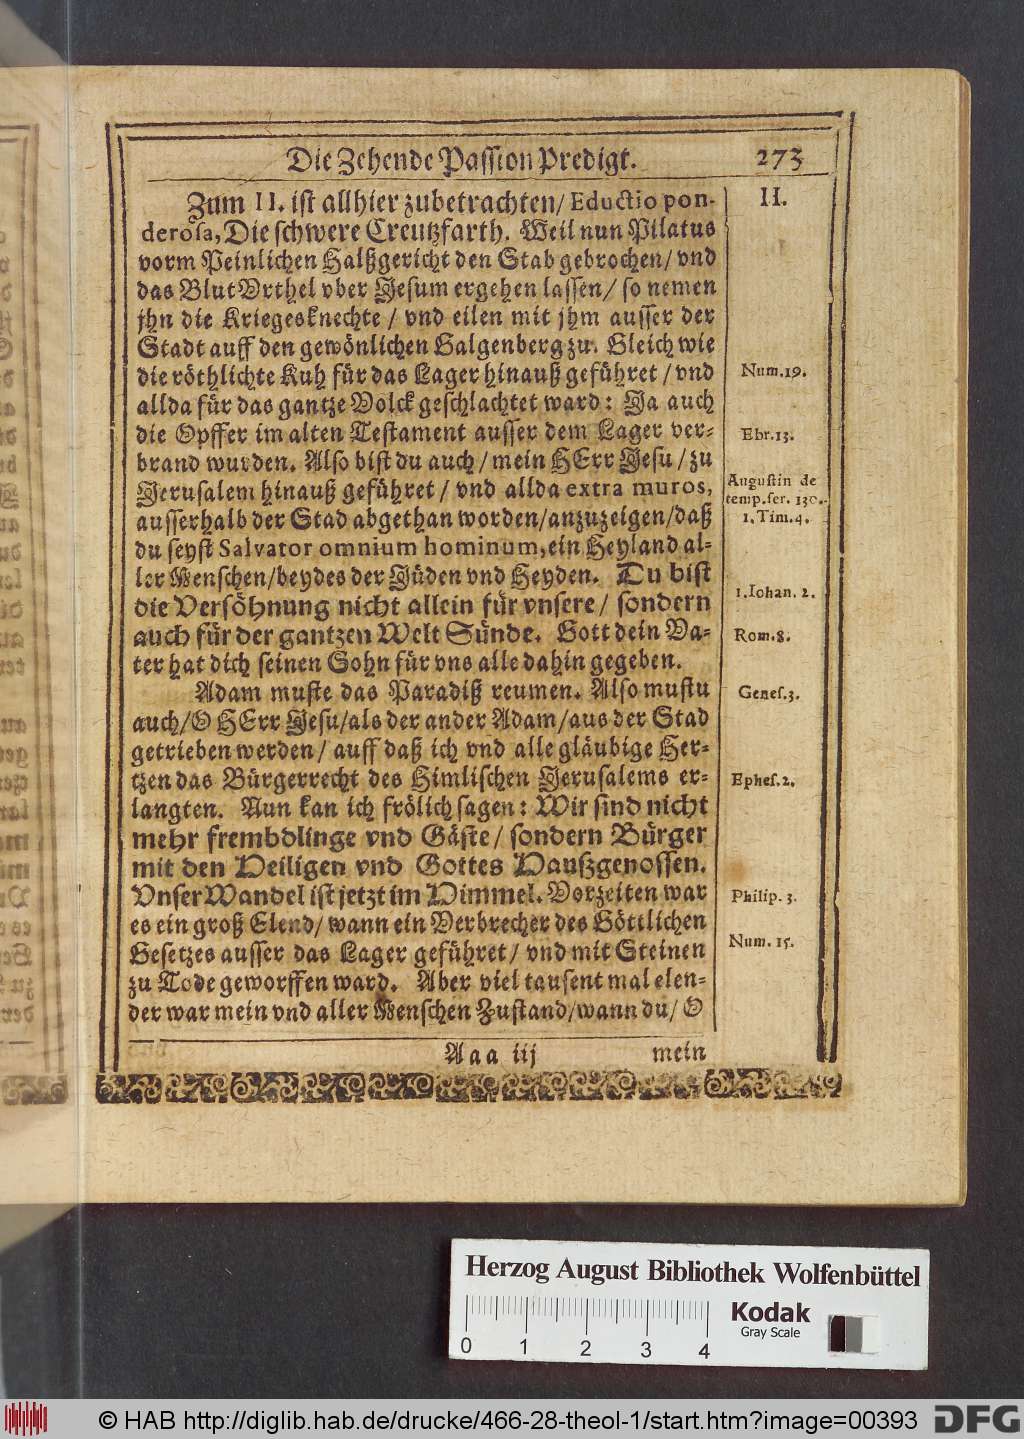 Die Zehende Passion Predigt. 273
Zum II. ist allhier zubetrachten/ Eductio pon-
derosa, Die schwere Creutzfarth. Weil nun Pilatus
vorm Peinlichen Halßgericht den Stab gebrochen/ vnd
das Blut Vrthel vber Jesum ergehen lassen/ so nemen
jhn die Kriegesknechte / vnd eilen mit jhm ausser der
Stadt auff den gewönlichen Galgenberg zu. Gleich wie
die röthlichte Kuh für das Lager hinauß geführet / vnd
allda für das gantze Volck geschlachtet ward: Ja auch
die Opffer im alten Testament ausser dem Lager ver-
brand wurden. Also bist du auch / mein HErr Jesu / zu
Jerusalem hinauß geführet / vnd allda extra muros,
ausserhalb der Stad abgethan worden/anzuzeigen/daß
du seyst Salvator omnium hominum, ein Heyland al-
ler Menschen/beydes der Jüden vnd Heyden. Du bist
die Versöhnung nicht allein für vnsere / sondern
auch für der gantzen Welt Sünde. Gott dein Va-
ter hat dich seinen Sohn für vns alle dahin gegeben.
Adam muste das Paradiß reumen. Also mustu
auch/O HErr Jesu/als der ander Adam/aus der Stad
getrieben werden / auff daß ich vnd alle gläubige Her-
tzen das Bürgerrecht des Himlischen Jerusalems er-
langten. Nun kan ich frölich sagen: Wir sind nicht
mehr frembdlinge vnd Gäste/ sondern Bürger
mit den Heiligen vnd Gottes Haußgenossen.
Vnser Wandel ist jetzt im Himmel. Vorzeiten war
es ein groß Elend/ wann ein Verbrecher des Göttlichen
Gesetzes ausser das Lager geführet / vnd mit Steinen
zu Tode geworffen ward. Aber viel tausent mal elen-
der war mein vnd aller Menschen Zustand/wann du/ O
Aaa iij mein
II.
Num. 19.
Ebr. 13.
Augustin de
temp. ser. 130.
1. Tim. 4.
1. Iohan. 2.
Rom. 8.
Genes. 3.
Ephes. 2.
Philip. 3.
Num. 15.
Herzog August Bibliothek Wolfenbüttel
0 1 2 3 4
Kodak
Gray Scale
© HAB http://diglib.hab.de/drucke/466-28-theol-1/start.htm?image=00393
DFG